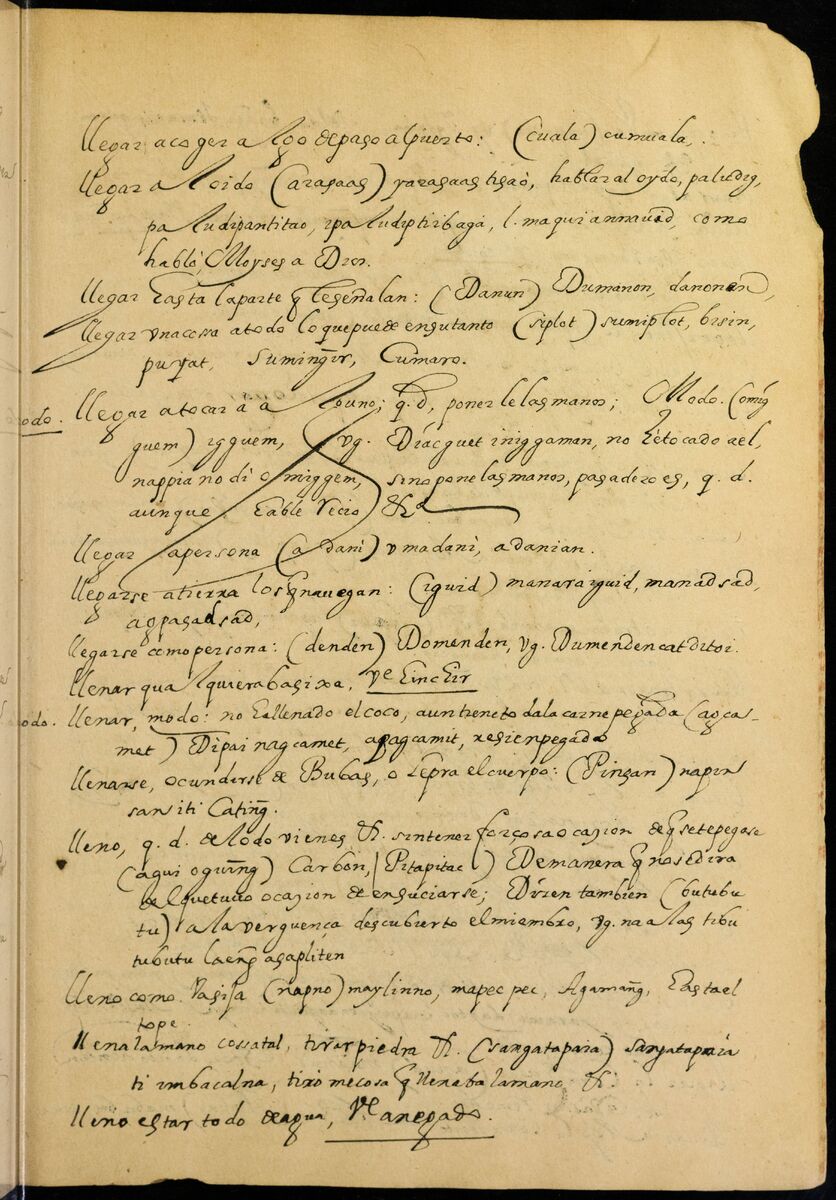 llegar a coger algo de paso al puerto: (cuala) cumuala,.
llegar al oido (arasaas) yarasaas tisaò, hablar al oydo, paludig,
paludipantitao, ipaludiptiribagà, l. maquiannavad, como
habló, Moyses a Dios.
llegar hasta la parte q̃ le señalan: (Danun) Dumanon, danonan,
llegar vna cossa a todo lo que puede en su tanto (siplot) sumiplot, bisin,
puyat, sumingir, Cumaro.
odo. llegar a tocar á alguno; q. d, ponerle las manos; Modo. (omig
guem) ygguem, vg. Diácguet iniggaman, no hé tocado a el,
nappia no di omiggem, sino pone las manos, pasadero es, q. d.
aunque hable recio &ª
llegar a persona (a dani) vmadani, adanian.
llegarse a tierra los q̃ nauegan: (iguid) manaraiguid, manadsad,
agpasadsad,
llegarse como persona: (denden) Domenden, vg. Dumenden cat ditoi.
llenar qualquiera basixa, vᵉ hinchir
odo. llenar, modo: no ha llenado el coco, aun tiene toda la carne pegada (agca-
met) Dipai nagcamet, apagcamit, resien pegado
llenarse, o cundirse de Bubas, o lepra el cuerpo: (Pinsan) napin
san iti Cating.
lleno, q. d. de lodo vienes &. sin tener forçosa ocasion de q̃ se te pegase
(agui oguing) Carbon, (Pitapitac) De manera q̃ no se dira
del que tuuo ocasion de ensuciarse; Dizen tambien (butubu
tu) a la verguença descubierto el miembro, vg. na alas tibu
tubutu laeng as apliten
lleno como vasija (napno) maylinno, mapec pec, Agamang, hasta el
tope.
llena la mano cossa tal, tirar piedra &. (sangatapaia) sangatapaia
ti imbacalna, tirò me cosa q̃ llenaba la mano &.
lleno estar todo de agua, vᵉ anegado.